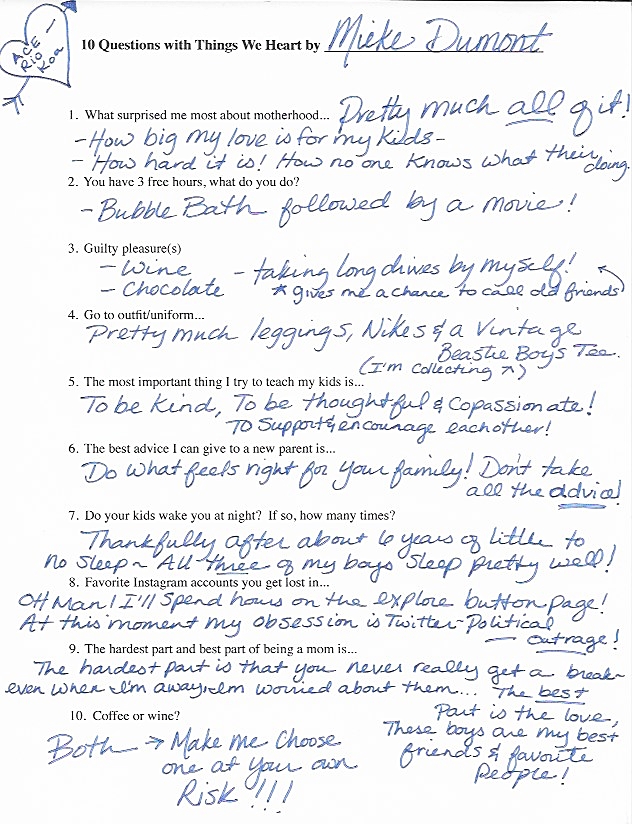 ACE
RIO
KOA
10 Questions with Things We Heart by Mieke Dumont
1. What surprised me most about motherhood... Pretty much all of it!
-How big my love is for my kids-
- How hard it is! How no one knows what their doing.
2. You have 3 free hours, what do you do?
-Bubble Bath followed by a movie!
3. Guilty pleasure(s)
- Wine - taking long drives by myself!
- Chocolate * gives me a chance to call old friends
4. Go to outfit/uniform...
Pretty much leggings, Nikes & a Vintage
Beastie Boys Tee.
(I'm collecting ↗)
5. The most important thing I try to teach my kids is...
To be Kind, To be thoughtful & Copassionate!
To Support & encourage eachother!
6. The best advice I can give to a new parent is...
Do what feels right for your family! Don't take
all the advice!
7. Do your kids wake you at night? If so, how many times?
Thankfully after about 6 years of little to
no sleep ~ All three of my boys sleep pretty well!
8. Favorite Instagram accounts you get lost in...
OH Man! I'll spend hours on the explore button page!
At this moment my obsession is Twitter-Political
— outrage!
9. The hardest part and best part of being a mom is...
The hardest part is that you never really get a break-
even when I'm away, I'm worried about them... The best
Part is the love,
These boys are my best
friends & favorite
People!
10. Coffee or wine?
Both → Make me choose
one at your own
Risk!!!